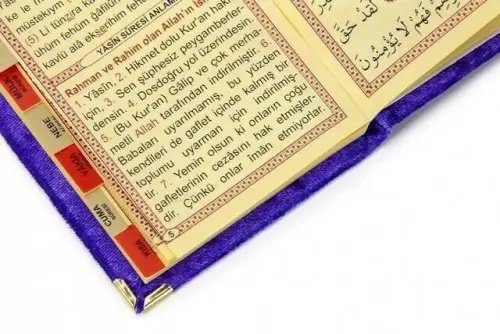 (5) Li tünzira kavmen
ühüm fehüm gâfilûn
kavlü alâ ekserihim fehüm
YÂSİN SÛRESİ ANLAMI
Rahman ve Rahim olan Allah'ın is
1. Yâsîn. 2. Hikmet dolu Kur'an hakkı
için. 3. Sen şüphesiz peygamberler-
densin. 4. Dosdoğru yol üzerindesin.
5. (Bu Kur'an) Gâlip ve çok merha-
metli Allah tarafından indirilmiştir. 6.
Babaları uyarılmamış, bu yüzden
kendileri de gaflet içinde kalmış bir
toplumu uyarman için indirilmiş-
tir. 7. Yemin olsun ki onların çoğu
gafletlerinin cezâsını hak etmişler-
dir. Çünkü onlar îmân etmiyorlar.
5
MÜLK
NEBE
CUMA
KISA
لَقَدْ حَقَّ
فَهُمْ لَا يُؤْمِنُونَ